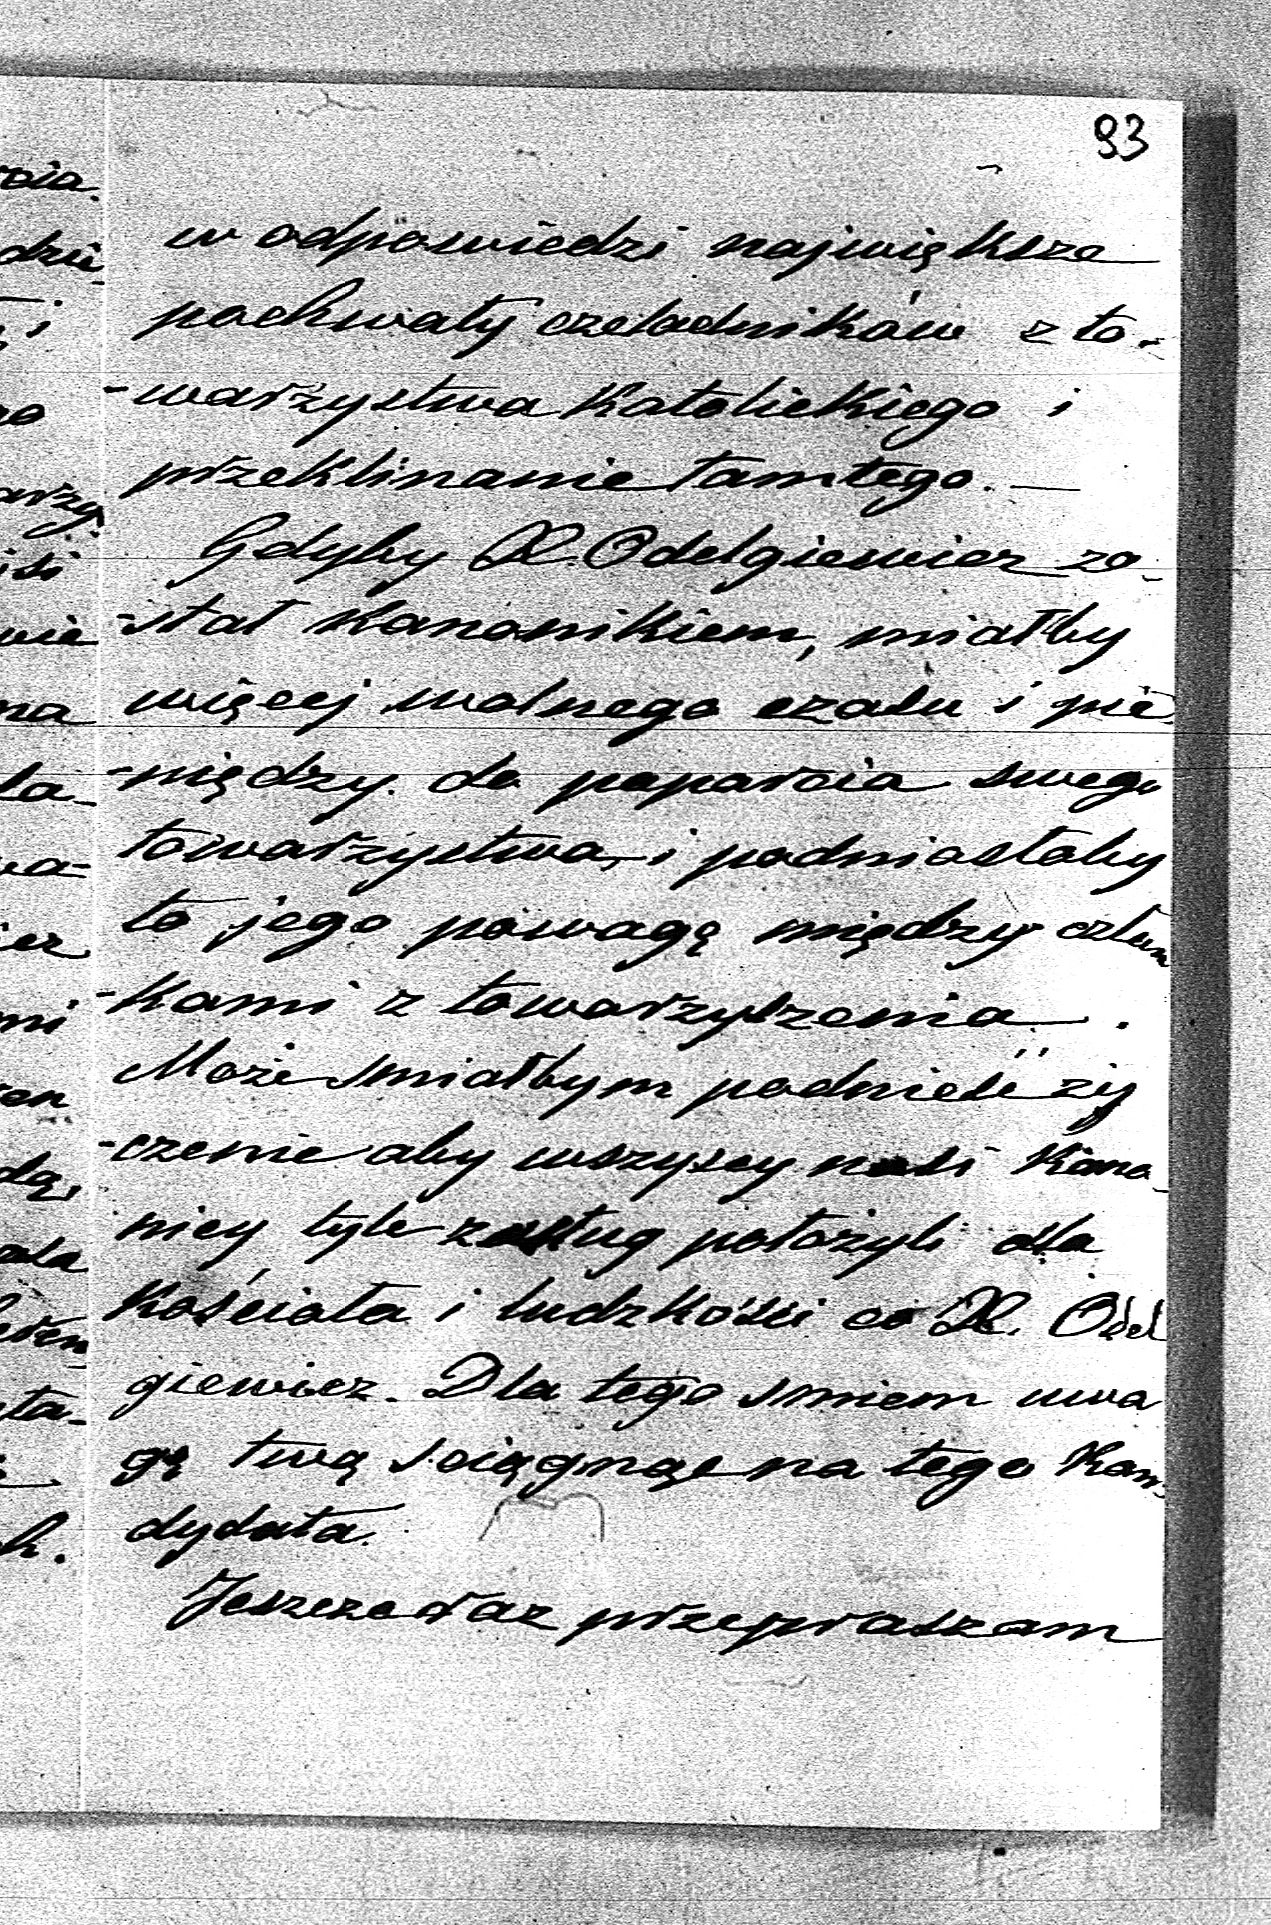 93
w odpowiedzi największe
pochwały czeladników z to-
-warzystwa Katolickiego i
przeklinanie tamtego. —
Gdyby X. Odelgiewicz zo-
-stał Kanonikiem, miałby
więcej wolnego czasu i pie-
-niędzy do poparcia swego
towarzystwa, i podniosłoby
to jego powagę między człon
-kami z towarzyszenia.
Może śmiałbym podnieść ży
-czenie aby wszyscy nasi Kano-
nicy tyle zasług położyli dla
Kościoła i ludzkości co X. Odel
giewicz. Dla tego smiem uwa
gę twą sciągnąć na tego Kan-
dydata.
Jeszcze raz przepraszam